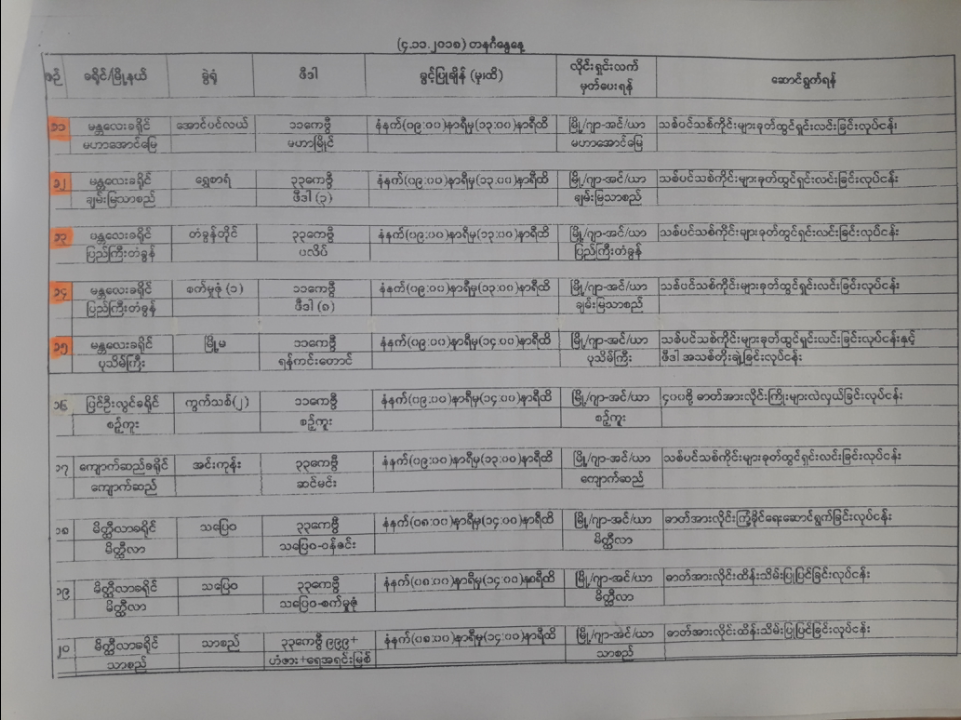 (၄.၁၁.၂၀၁၈) တနင်္ဂနွေနေ့
စဉ် ခရိုင်/မြို့နယ် ခွဲရုံ ဖီဒါ ခွင့်ပြုချိန် (မှ၊ထိ) လိုင်းရှင်းလက် ဆောင်ရွက်ရန်
မှတ်ပေးရန်
၁၁ မန္တလေးခရိုင် အောင်ပင်လယ် ၁၁ကေဗွီ နံနက်(၀၉:၀၀)နာရီမှ(၁၃:၀၀)နာရီထိ မြို့/ဂျာ-အင်/ယာ သစ်ပင်သစ်ကိုင်းများခုတ်ထွင်ရှင်းလင်းခြင်းလုပ်ငန်း
မဟာအောင်မြေ မဟာမြိုင် မဟာအောင်မြေ
၁၂ မန္တလေးခရိုင် ရွှေစာရံ ၃၃ကေဗွီ နံနက်(၀၉:၀၀)နာရီမှ(၁၃:၀၀)နာရီထိ မြို့/ဂျာ-အင်/ယာ သစ်ပင်သစ်ကိုင်းများခုတ်ထွင်ရှင်းလင်းခြင်းလုပ်ငန်း
ချမ်းမြသာစည် ဖီဒါ (၃) ချမ်းမြသာစည်
၁၃ မန္တလေးခရိုင် တံခွန်တိုင် ၃၃ကေဗွီ နံနက်(၀၉:၀၀)နာရီမှ(၁၃:၀၀)နာရီထိ မြို့/ဂျာ-အင်/ယာ သစ်ပင်သစ်ကိုင်းများခုတ်ထွင်ရှင်းလင်းခြင်းလုပ်ငန်း
ပြည်ကြီးတံခွန် ပလိပ် ပြည်ကြီးတံခွန်
၁၄ မန္တလေးခရိုင် စက်မှုဇုံ (၁) ၁၁ကေဗွီ နံနက်(၀၉:၀၀)နာရီမှ(၁၃:၀၀)နာရီထိ မြို့/ဂျာ-အင်/ယာ သစ်ပင်သစ်ကိုင်းများခုတ်ထွင်ရှင်းလင်းခြင်းလုပ်ငန်း
ပြည်ကြီးတံခွန် ဖီဒါ (၈) ချမ်းမြသာစည်
၁၅ မန္တလေးခရိုင် မြို့မ ၁၁ကေဗွီ နံနက်(၀၉:၀၀)နာရီမှ(၁၄:၀၀)နာရီထိ မြို့/ဂျာ-အင်/ယာ သစ်ပင်သစ်ကိုင်းများခုတ်ထွင်ရှင်းလင်းခြင်းလုပ်ငန်းနှင့်
ပုသိမ်ကြီး ရန်ကင်းတောင် ပုသိမ်ကြီး ဖီဒါ အသစ်တိုးချဲ့ခြင်းလုပ်ငန်း
၁၆ ပြင်ဦးလွင်ခရိုင် ကွက်သစ်(၂) ၁၁ကေဗွီ နံနက်(၀၉:၀၀)နာရီမှ(၁၄:၀၀)နာရီထိ မြို့/ဂျာ-အင်/ယာ ၄၀၀ဗို့ ဓာတ်အားလိုင်းကြိုးများလဲလှယ်ခြင်းလုပ်ငန်း
စဉ့်ကူး စဉ့်ကူး စဉ့်ကူး
၁၇ ကျောက်ဆည်ခရိုင် အင်းကုန်း ၃၃ကေဗွီ နံနက်(၀၉:၀၀)နာရီမှ(၁၃:၀၀)နာရီထိ မြို့/ဂျာ-အင်/ယာ သစ်ပင်သစ်ကိုင်းများခုတ်ထွင်ရှင်းလင်းခြင်းလုပ်ငန်း
ကျောက်ဆည် ဆင်မင်း ကျောက်ဆည်
၁၈ မိတ္ထီလာခရိုင် သပြေဝ ၃၃ကေဗွီ နံနက်(၀၈:၀၀)နာရီမှ(၁၄:၀၀)နာရီထိ မြို့/ဂျာ-အင်/ယာ ဓာတ်အားလိုင်းကြံ့ခိုင်ရေးဆောင်ရွက်ခြင်းလုပ်ငန်း
မိတ္ထီလာ သပြေဝ-ဝန်ဇင်း မိတ္ထီလာ
၁၉ မိတ္ထီလာခရိုင် သပြေဝ ၃၃ကေဗွီ နံနက်(၀၈:၀၀)နာရီမှ(၁၄:၀၀)နာရီထိ မြို့/ဂျာ-အင်/ယာ ဓာတ်အားလိုင်းထိန်းသိမ်းပြုပြင်ခြင်းလုပ်ငန်း
မိတ္ထီလာ သပြေဝ-စက်မှုဇုံ မိတ္ထီလာ
၂၀ မိတ္ထီလာခရိုင် သာစည် ၃၃ကေဗွီ ၉၉၉+ နံနက်(၀၈:၀၀)နာရီမှ(၁၄:၀၀)နာရီထိ မြို့/ဂျာ-အင်/ယာ ဓာတ်အားလိုင်းထိန်းသိမ်းပြုပြင်ခြင်းလုပ်ငန်း
သာစည် ဟံဇား+ရေအရင်းမြစ် သာစည်